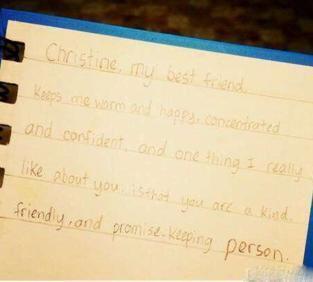 Christine, my best friend,
keeps me warm and happy, concentrated
and confident, and one thing I really
like about you, is that you are a kind,
friendly, and promise-keeping person.